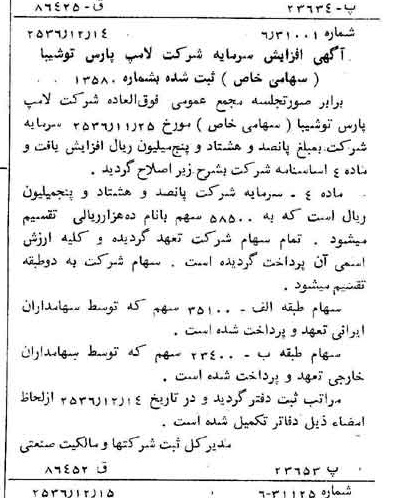 پ-۲۳۶۳۴ ق-۸۶۴۲۵
شماره ۶٫۳۱۰۰۱ ۲۵۳۶٫۱۲٫۱۴
آگهی افزایش سرمایه شرکت لامپ پارس توشیبا
( سهامی خاص ) ثبت شده بشماره ۱۳۵۸۰
برابر صورتجلسه مجمع عمومی فوق‌العاده شرکت لامپ
پارس توشیبا ( سهامی خاص ) مورخ ۲۵۳۶٫۱۱٫۲۵ سرمایه
شرکت بمبلغ پانصد و هشتاد و پنج‌میلیون ریال افزایش یافت و
ماده ٤ اساسنامه شرکت بشرح زیر اصلاح گردید .
ماده ٤ - سرمایه شرکت پانصد و هشتاد و پنجمیلیون
ریال است که به ۵۸۵۰۰ سهم بانام ده‌هزارریالی تقسیم
میشود . تمام سهام شرکت تعهد گردیده و کلیه ارزش
اسمی آن پرداخت گردیده است . سهام شرکت به دوطبقه
تقسیم میشود .
سهام طبقه الف - ۳۵۱۰۰ سهم که توسط سهامداران
ایرانی تعهد و پرداخت شده است .
سهام طبقه ب - ۲۳٤۰۰ سهم که توسط سهامداران
خارجی تعهد و پرداخت شده است .
مراتب ثبت دفتر گردید و در تاریخ ۲۵۳۶٫۱۲٫۱۴ ازلحاظ
امضاء ذیل دفاتر تکمیل شده است .
مدیرکل ثبت شرکتها و مالکیت صنعتی
پ ۲۳۶۵۳ ق ۸۶۴۵۲
شماره ۳۱۱۲۵-۶ ۲۵۳۶٫۱۲٫۱۵